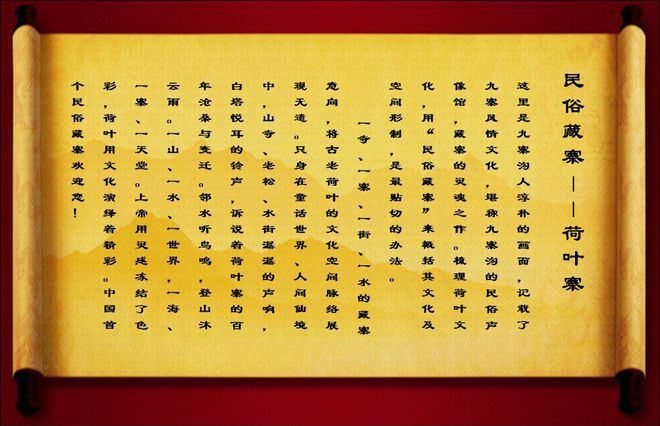 民俗藏寨——荷叶寨
这里是九寨沟人淳朴的画面,记载了
九寨风情文化,堪称九寨沟的民俗声
像馆,藏寨的灵魂之作。梳理荷叶文
化,用“民俗藏寨”来概括其文化及
空间形制,是最贴切的办法。
一寺、一寨、一街、一水的藏寨
意向,将古老荷叶的文化空间脉络展
现无遗。只身在童话世界、人间仙境
中,山寺、老松、水街潺潺的声响,
白塔悦耳的铃声,诉说着荷叶寨的百
年沧桑与变迁。邻水听鸟鸣,登山沐
云雨。一山、一水、一世界,一海、
一寨、一天堂。上帝用灵感冻结了色
彩,荷叶用文化演绎着精彩。中国首
个民俗藏寨欢迎您!